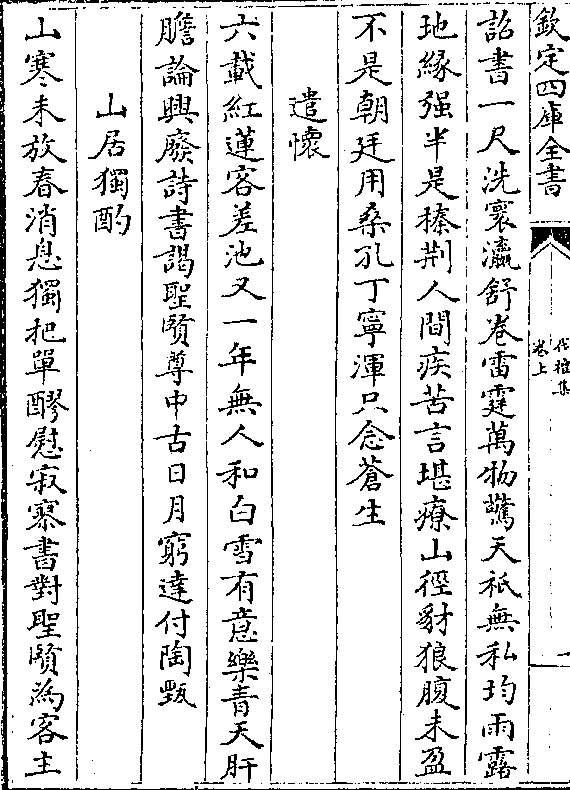 欽定四庫全書
伐檀集
卷上
一
詔書一尺洗寰瀛舒卷雷霆萬物驚天祇無私均雨露
地緣强半是榛荆人間疾苦言堪療山徑豺狼腹未盈
不是朝廷用桑孔丁寧渾只念蒼生
遣懷
六載紅蓮客差池又一年無人和白雪有意樂青天肝
膽論興廢詩書謁聖賢尊中古日月窮達付陶甄
山居獨酌
山寒未放春消息獨把單醪慰寂寥書對聖賢為客主